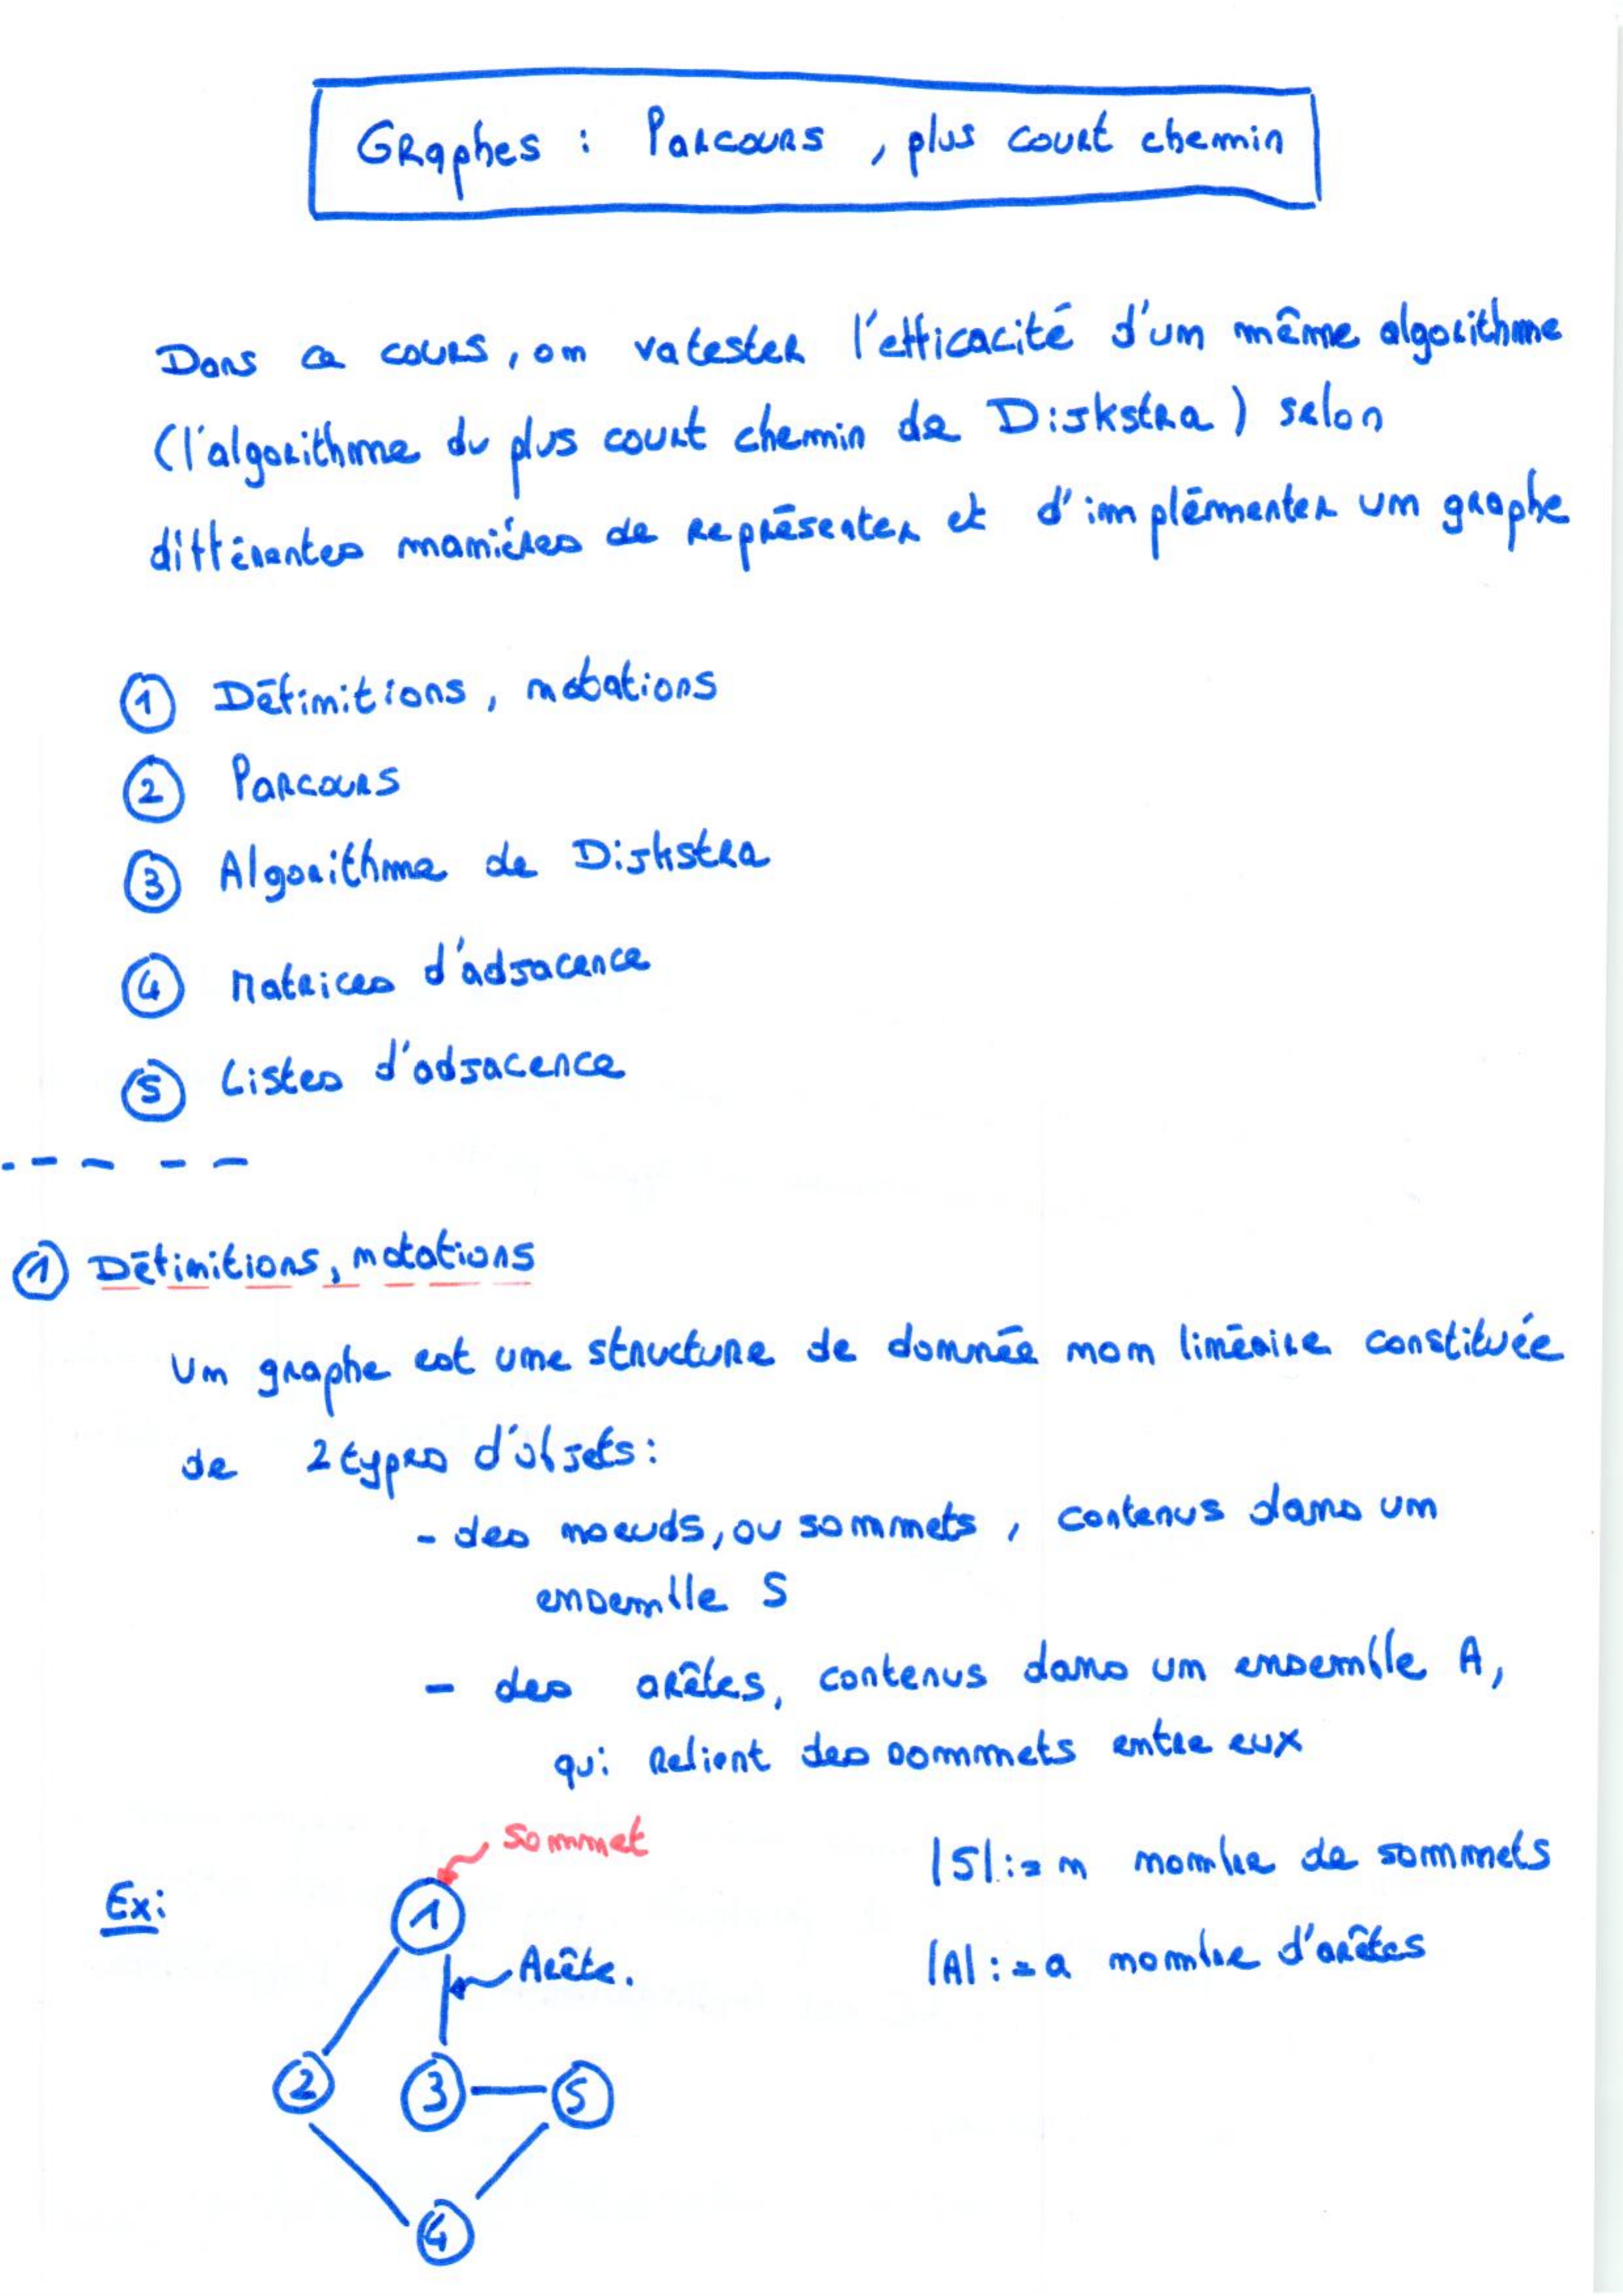 Graphes : Parcours, plus court chemin
Dans ce cours, on va tester l'efficacité d'un même algorithme
(l'algorithme du plus court chemin de Dijkstra) selon
différentes manières de représenter et d'implémenter un graphe
① Définitions, notations
② Parcours
③ Algorithme de Dijkstra
④ Matrices d'adjacence
⑤ Listes d'adjacence
① Définitions, notations
Un graphe est une structure de donnée non linéaire constituée
de 2 types d'objets :
- des noeuds, ou sommets, contenus dans un
ensemble S
- des arêtes, contenus dans un ensemble A,
qui relient des sommets entre eux
Sommet
|S| := n nombre de sommets
Ex:
1
Arête.
|A| := a nombre d'arêtes
2 3 5
4